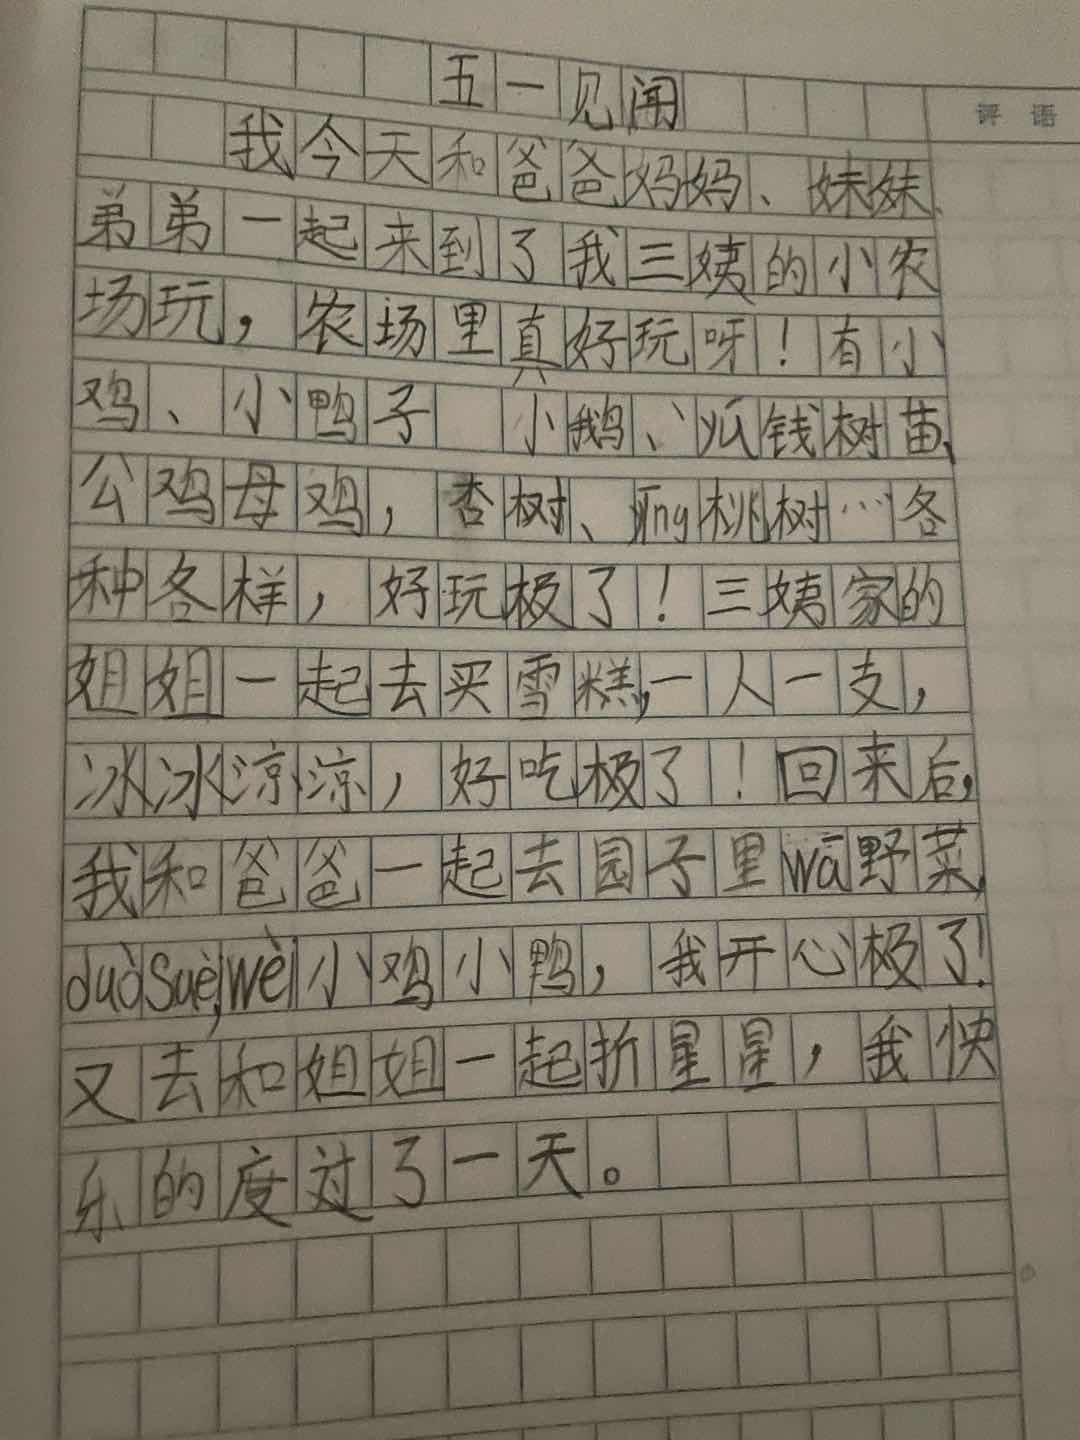 五一见闻
评语
我今天和爸爸妈妈、妹妹、
弟弟一起来到了我三姨的小农
场玩，农场里真好玩呀！有小
鸡、小鸭子 小鹅、瓜钱树苗、
公鸡母鸡，杏树、yīng桃树…各
种各样，好玩极了！三姨家的
姐姐一起去买雪糕，一人一支，
冰冰凉凉，好吃极了！回来后，
我和爸爸一起去园子里wā野菜，
duòsuè，wèi小鸡小鸭，我开心极了！
又去和姐姐一起折星星，我快
乐的度过了一天。